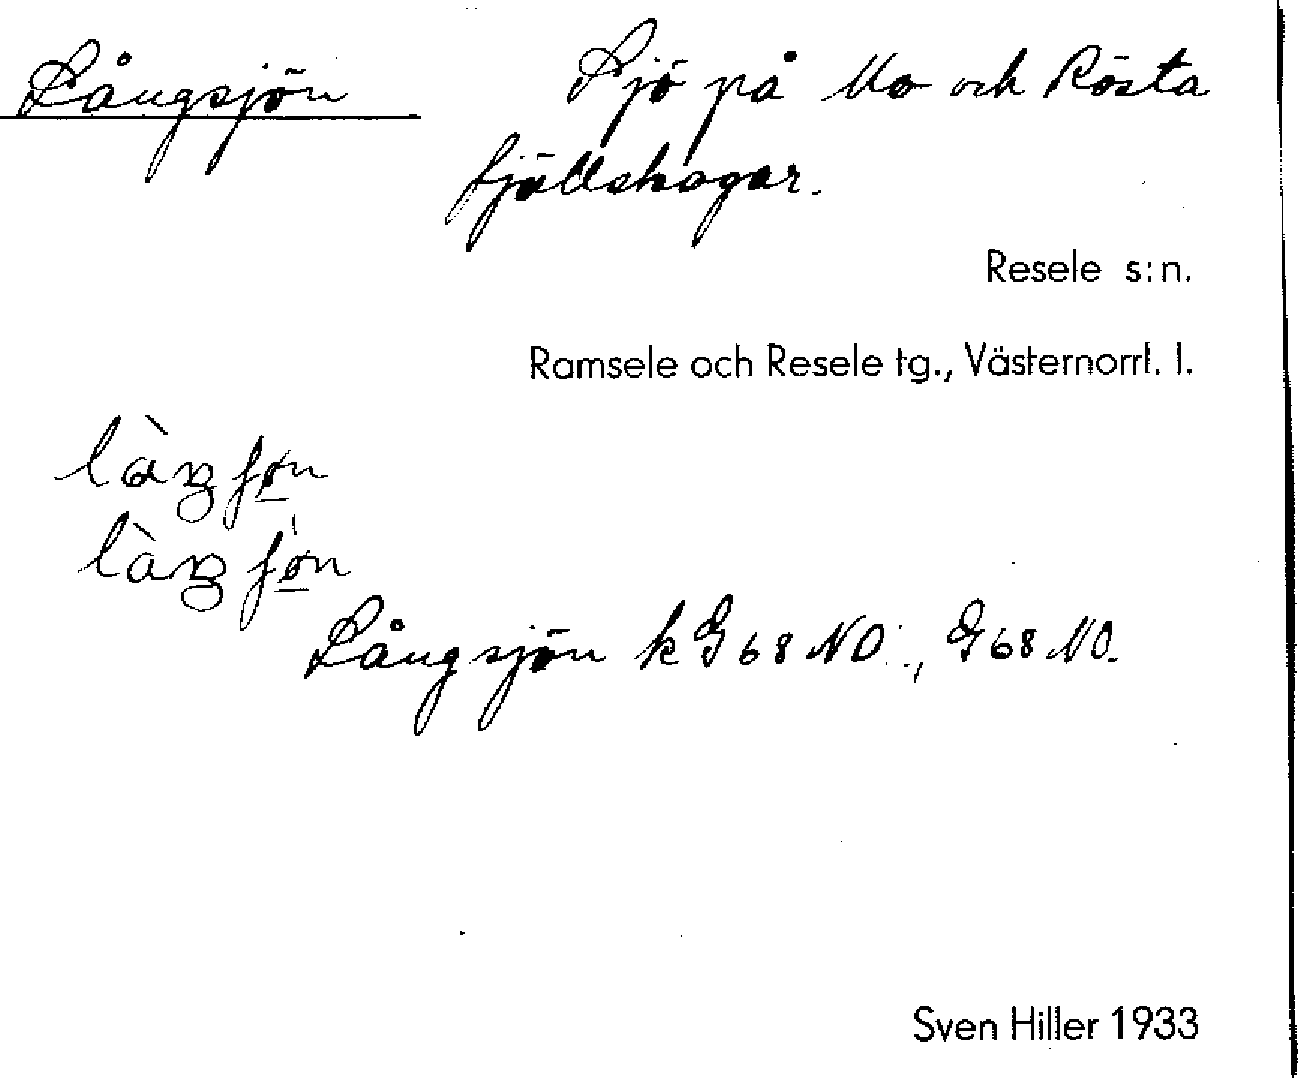 Långsjön Sjö på Mo och Rösta
fjällskogar.
Resele s:n.
Ramsele och Resele tg., Västernorrl. l.
Långsjön k G 68 NO., G 68 NO.
Sven Hiller 1933